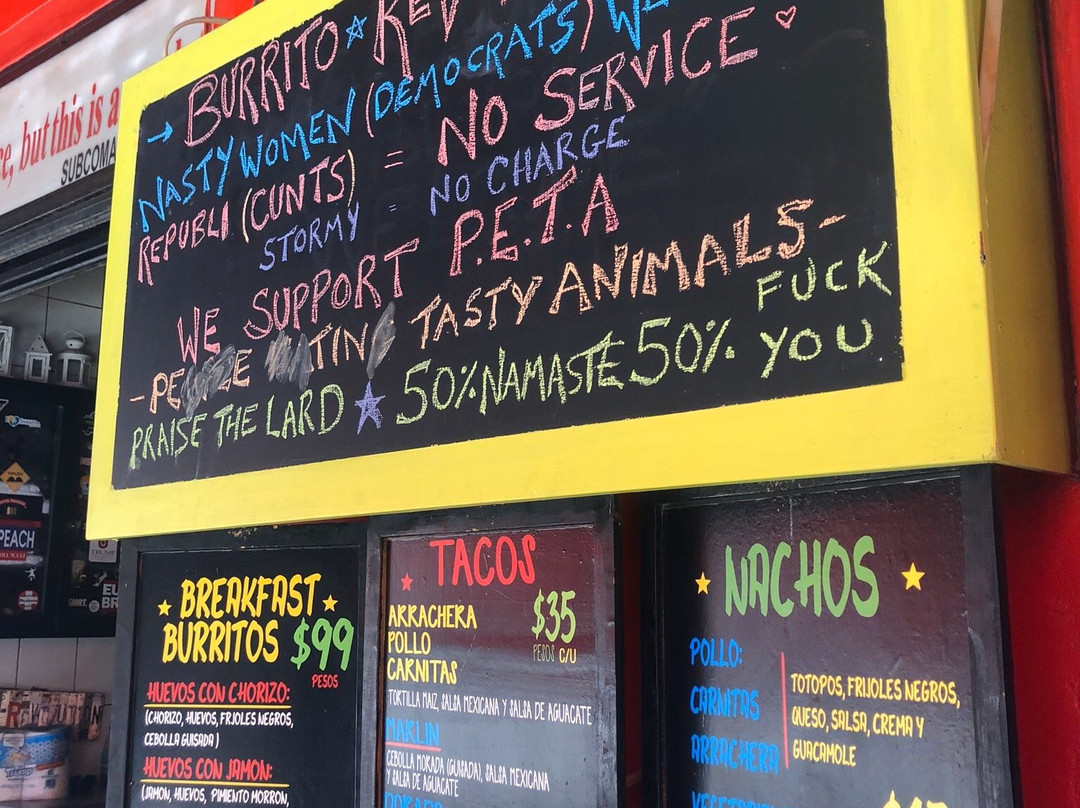 BURRITO ☆ REV
→ NASTY WOMEN (DEMOCRATS) WE
REPUBLI (CUNTS) = NO SERVICE ♡
STORMY = NO CHARGE
WE SUPPORT P.E.T.A
TASTY ANIMALS-
PRAISE THE LARD ★ 50% NAMASTE 50% FUCK YOU
ce, but this is a
SUBCOMA
PEACH
BREAKFAST
BURRITOS $99
PESOS
HUEVOS CON CHORIZO:
(CHORIZO, HUEVOS, FRJOLES NEGROS,
CEBOLLA GUISADA)
HUEVOS CON JAMON:
(JAMON, HUEVOS, PIMIENTO MORRON,
TACOS
ARRACHERA
POLLO
CARNITAS
$35
PESOS C/U
TORTILLA MAIZ, SALSA MEXICANA Y SALSA DE AGUACATE
MARLIN
CEBOLLA MORADA (GUISADA), SALSA MEXICANA
Y SALSA DE AGUACATE
DORADO
NACHOS
POLLO:
CARNITAS
ARRACHERA
TOTOPOS, FRIJOLES NEGROS,
QUESO, SALSA, CREMA Y
GUACAMOLE